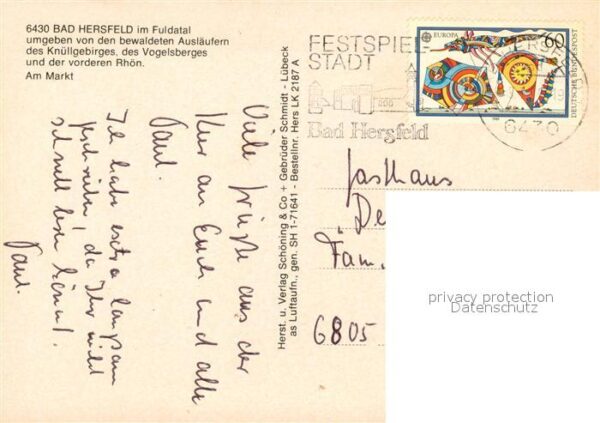 6430 BAD HERSFELD im Fuldatal
umgeben von den bewaldeten Ausläufern
des Knüllgebirges, des Vogelsberges
und der vorderen Rhön.
Am Markt
Viele Grüße aus der
Kur an Euch und alle
Paul.
Ich habe extra langsam
geschrieben, da Ihr nicht
schnell lesen könnt.
Paul
Herst. u. Verlag Schöning & Co + Gebrüder Schmidt - Lübeck
as Luftaufn., gen. SH 1-71641 - Bestellnr. Hers LK 2187 A
FESTSPIEL-
STADT
Bad Hersfeld
EUROPA
60
DEUTSCHE BUNDESPOST
6430
Gasthaus
"De
Fam.
6805
privacy protection
Datenschutz